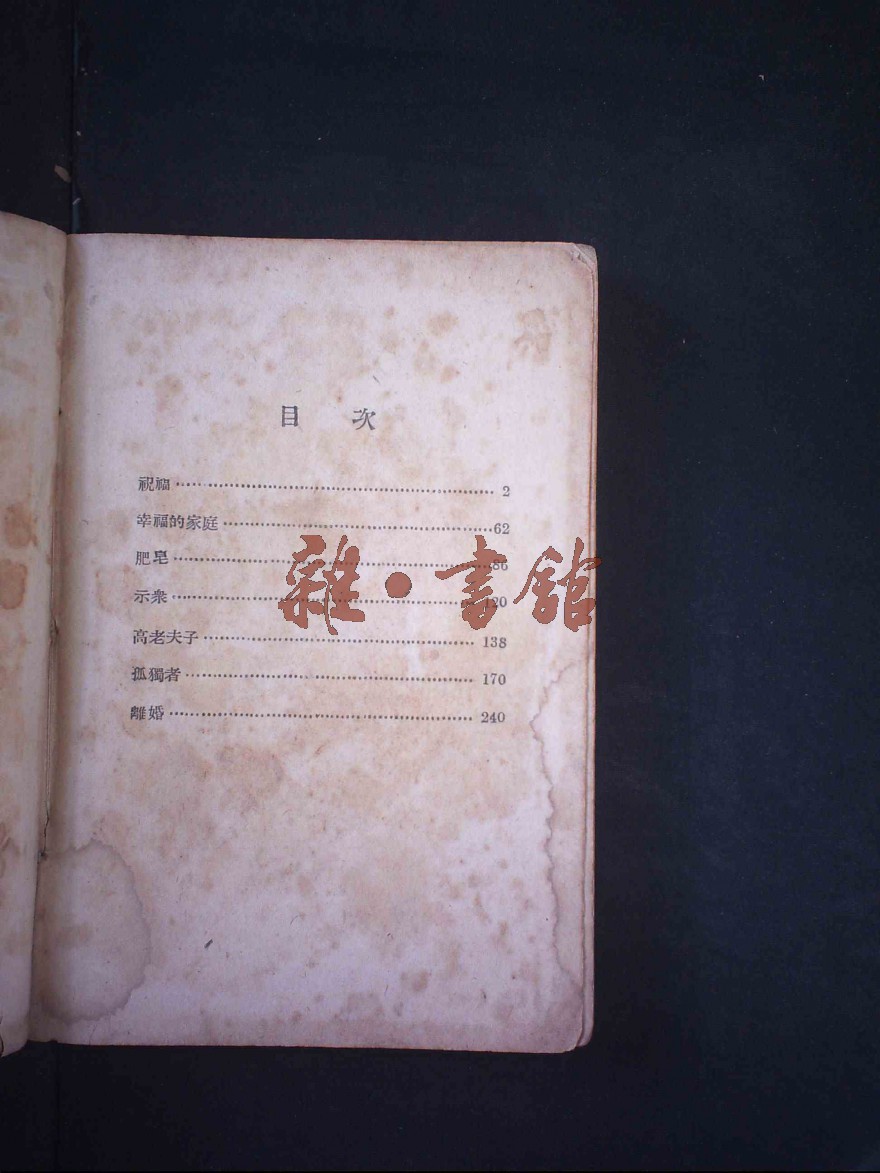 目 次
祝福 2
幸福的家庭 62
肥皂 86
示衆 120
高老夫子 138
孤獨者 170
離婚 240
雜·書館